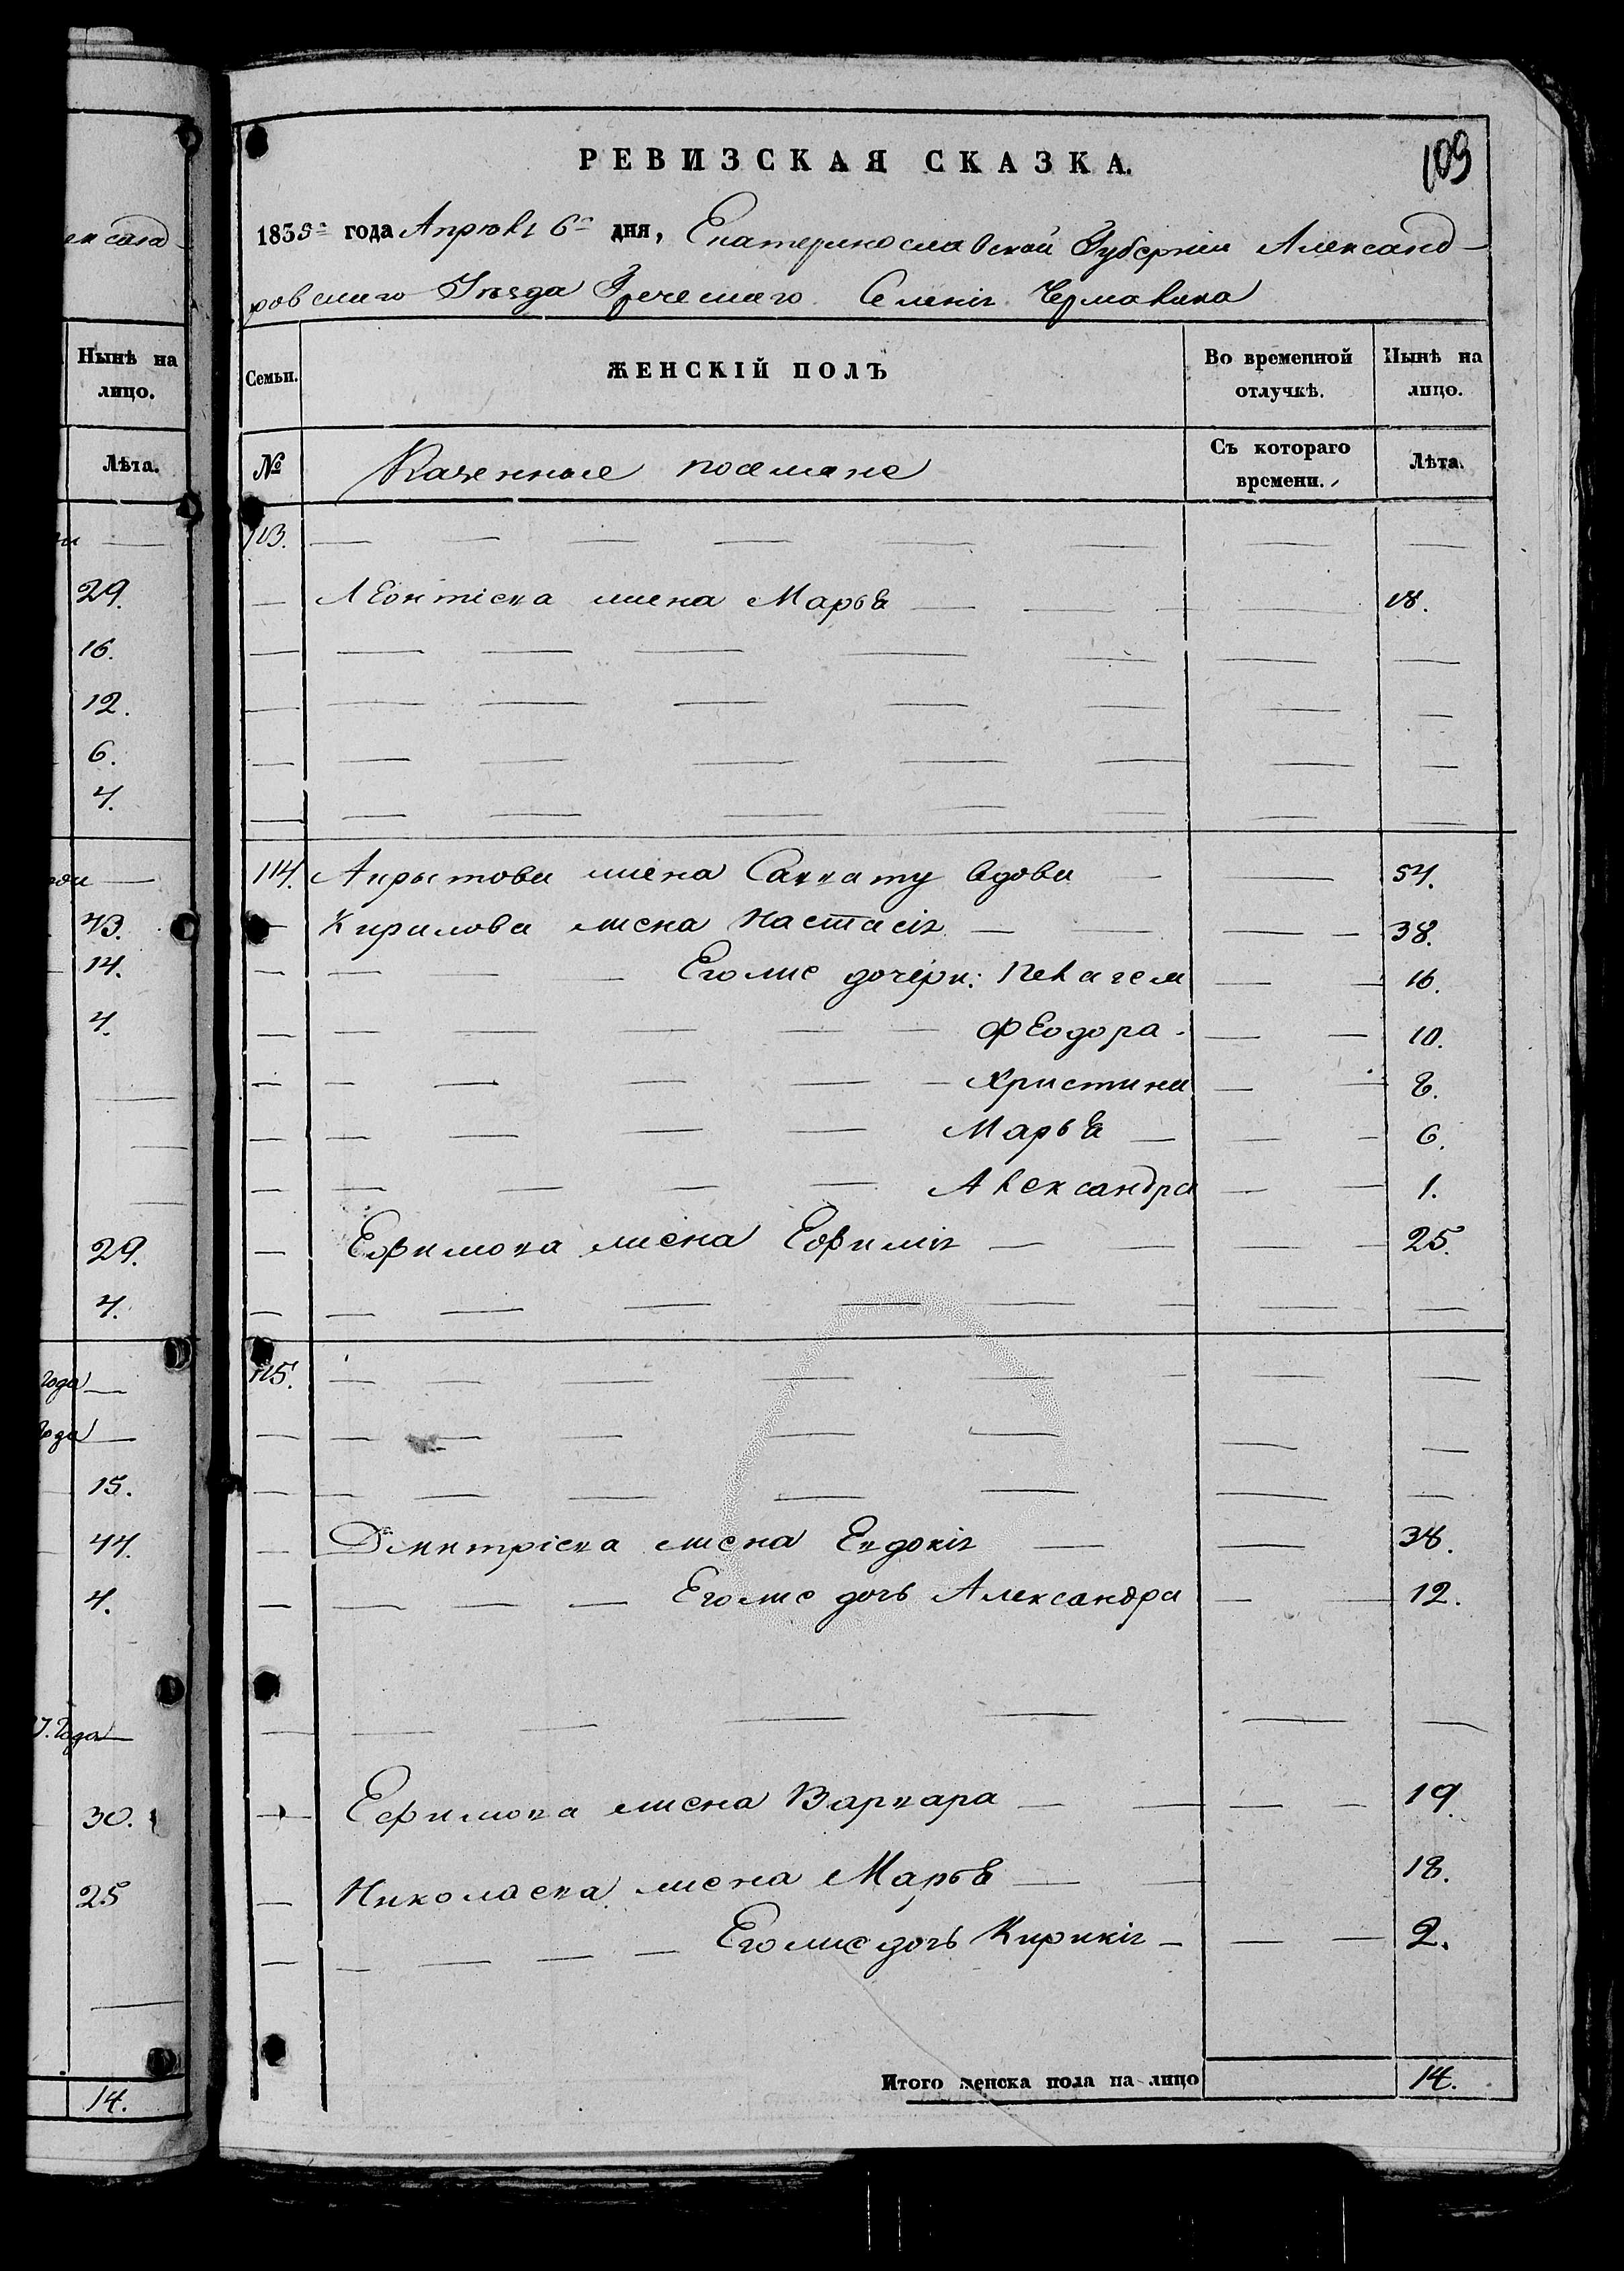 ен санд
Нынѣ на
лицо.
Лѣта.
29.
16.
12.
6.
4.
43.
14.
4.
29.
4.
года
года
15.
44.
4.
года
30.
25
14.
109
РЕВИЗСКАЯ СКАЗКА.
1835го года Апрѣля 6го дня, Екатеринославской Губерніи Александ-
ровскаго Уѣзда Греческаго Селенія Чермалика
Семьи. ЖЕНСКІЙ ПОЛЪ Во временной отлучкѣ. Нынѣ на лицо.
№ Казенные поселяне Съ котораго времени. Лѣта.
113.
Леонтіева жена Марья 18.
114. жена вдова 54.
Кирилова жена Настасія 38.
Его же дочери: Пелагея 16.
Феодора 10.
Христина 8.
Марья 6.
Александра 1.
Ефимова жена Ефимія 25.
115.
Дмитріева жена Евдокія 38.
Его же дочь Александра 12.
Ефимова жена Варвара 19.
Николаева жена Марья 18.
Его же дочь Кирикія 2.
Итого женска пола на лицо 14.